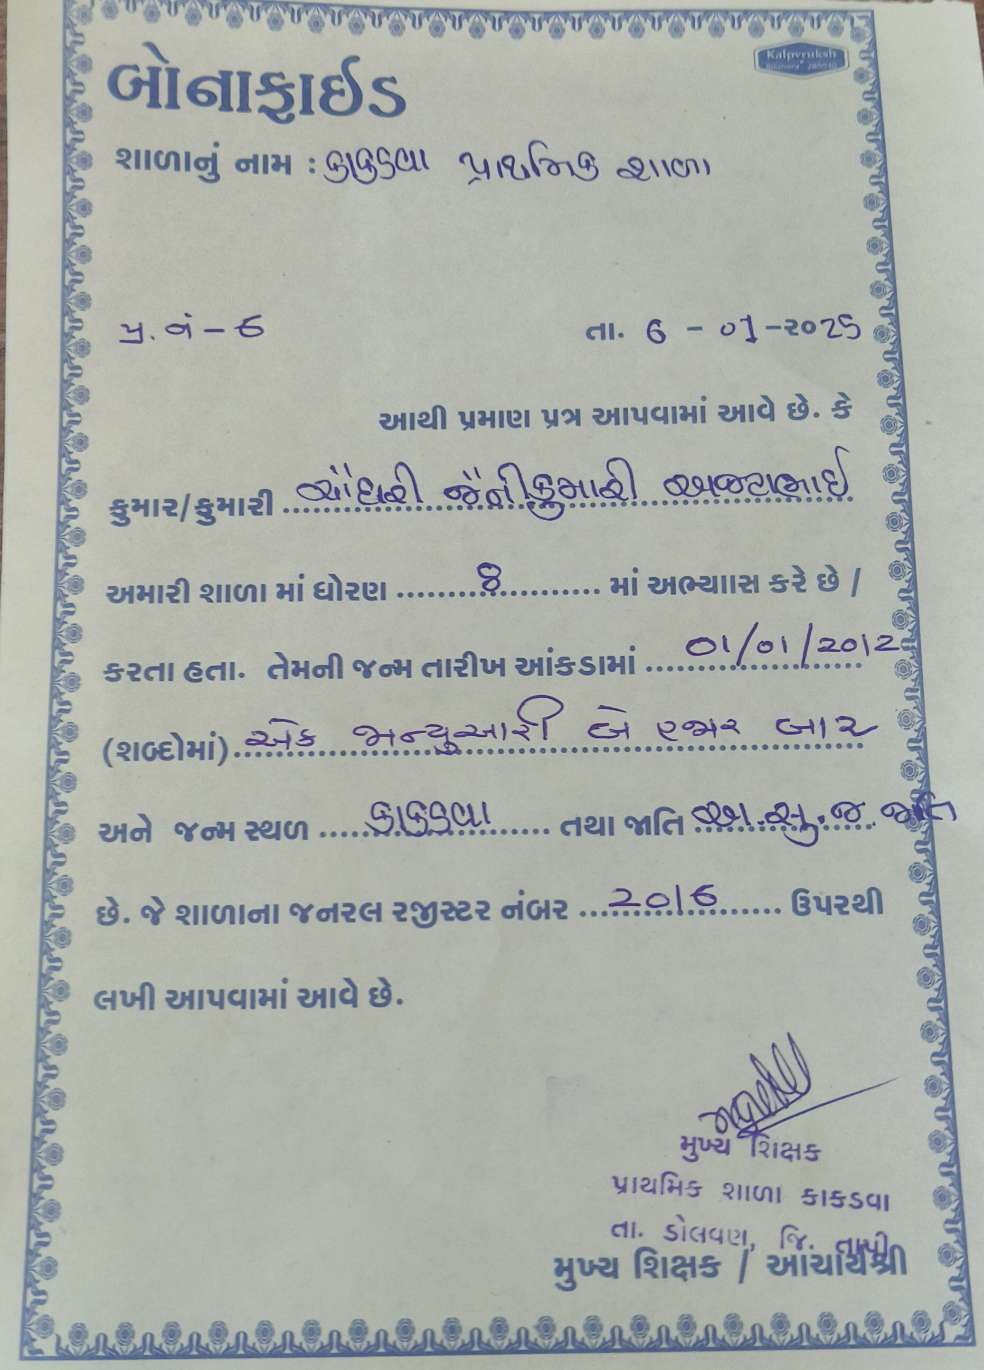 Kalpvruksh
બોનાફાઈડ
શાળાનું નામ : કાકડવા પ્રાથમિક શાળા
પ્ર. નં - 6
તા. 6 - 01 - ૨૦25
આથી પ્રમાણ પત્ર આપવામાં આવે છે. કે
કુમાર/કુમારી ચૌધરી જૈનીકુમારી અજયભાઈ
અમારી શાળા માં ધોરણ 8 માં અભ્યાસ કરે છે /
કરતા હતા. તેમની જન્મ તારીખ આંકડામાં 01/01/2012
(શબ્દોમાં) એક જાન્યુઆરી બે હજાર બાર
અને જન્મ સ્થળ કાકડવા તથા જાતિ અ.સુ.જ.જાતિ
છે. જે શાળાના જનરલ રજીસ્ટર નંબર 2016 ઉપરથી
લખી આપવામાં આવે છે.
મુખ્ય શિક્ષક
પ્રાથમિક શાળા કાકડવા
તા. ડોલવણ, જિ. તાપી
મુખ્ય શિક્ષક / આચાર્યશ્રી